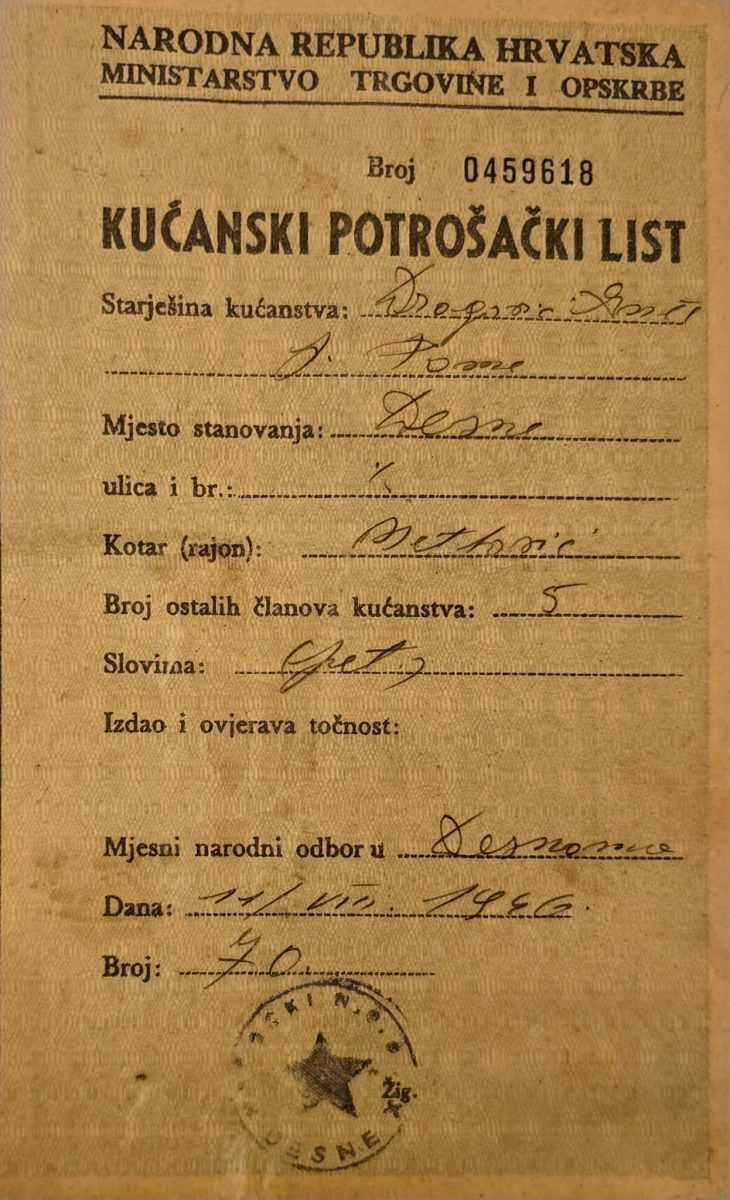 NARODNA REPUBLIKA HRVATSKA
MINISTARSTVO TRGOVINE I OPSKRBE
Broj 0459618
KUĆANSKI POTROŠAČKI LIST
Starješina kućanstva: Dragović Ante
p. Tome
Mjesto stanovanja: Desne
ulica i br.: ⁒
Kotar (rajon): Metković
Broj ostalih članova kućanstva: 5
Slovima: (pet)
Izdao i ovjerava točnost:
Mjesni narodni odbor u Desnama
Dana: 11/VIII. 1946.
Broj: 70
SKI N.O.O
Žig.
DESNE